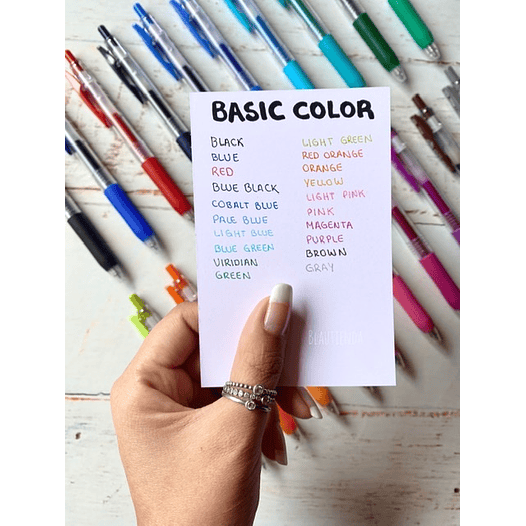 BASIC COLOR
BLACK
BLUE
RED
BLUE BLACK
COBALT BLUE
PALE BLUE
LIGHT BLUE
BLUE GREEN
VIRIDIAN
GREEN
LIGHT GREEN
RED ORANGE
ORANGE
YELLOW
LIGHT PINK
PINK
MAGENTA
PURPLE
BROWN
GRAY